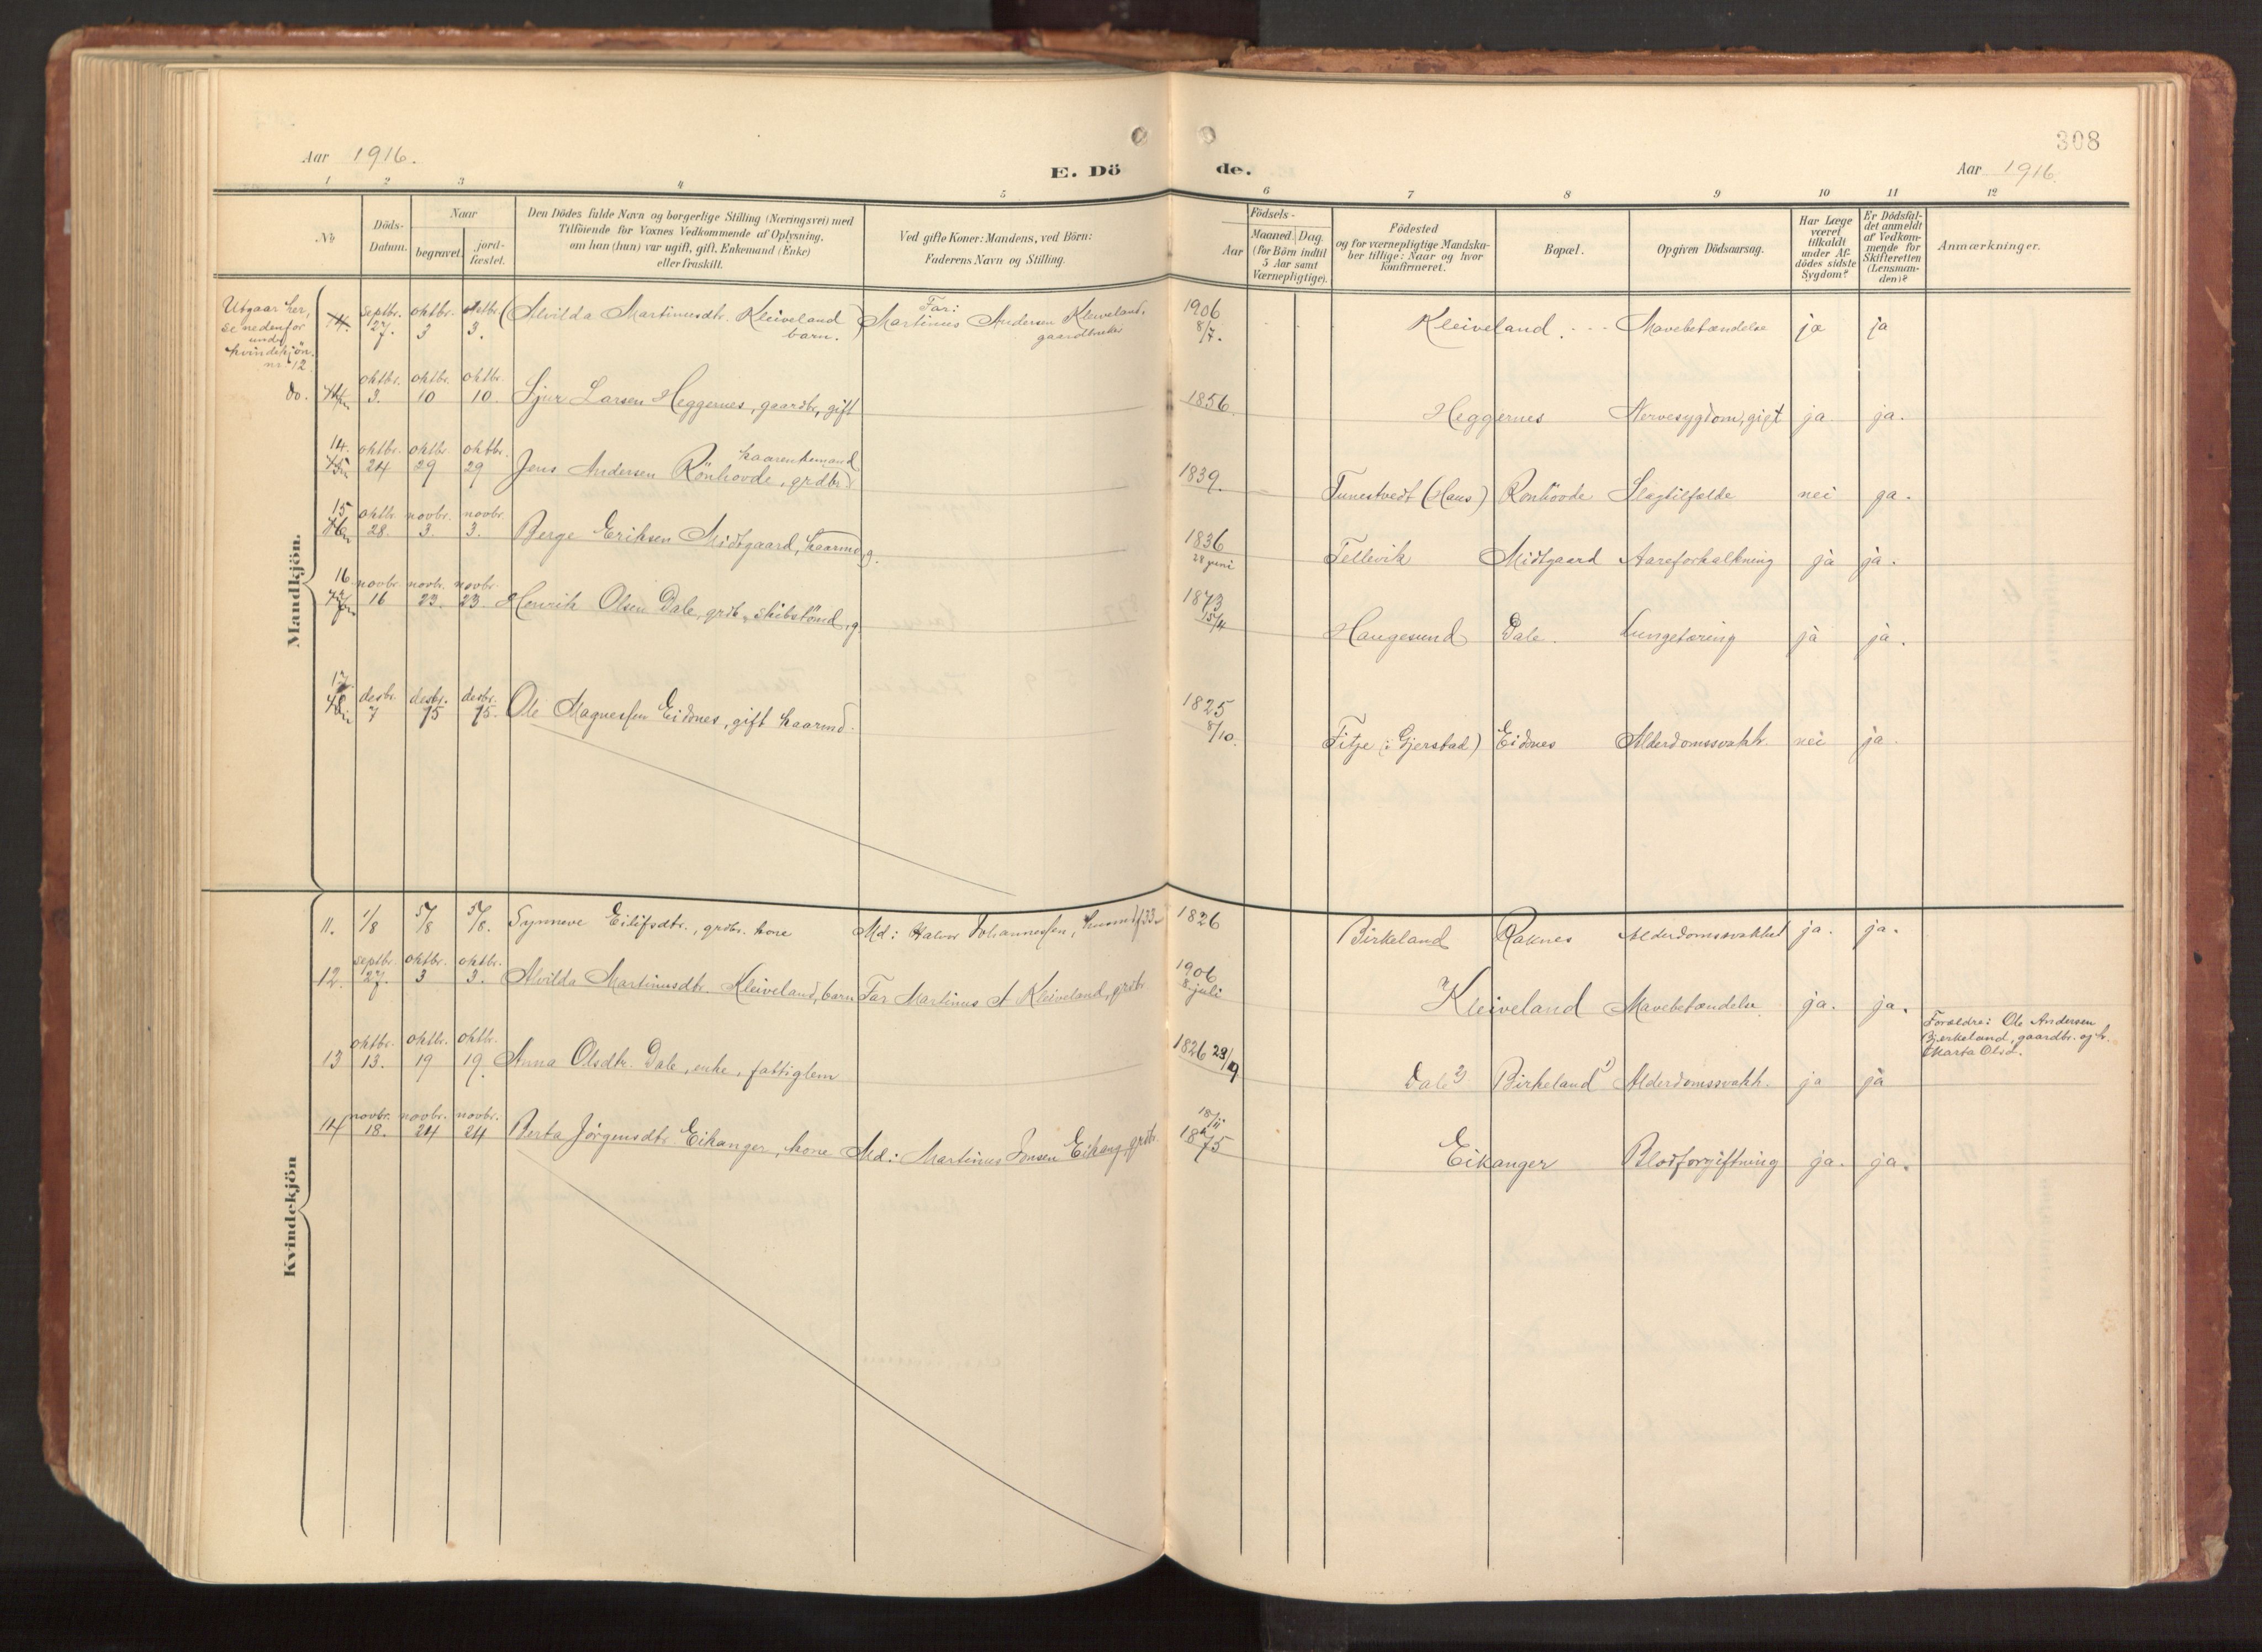 308
Aar 1916.
E. Dö
de.
Aar 1916.
1 2 3 4 5 6 7 8 9 10 11 12
No
Döds-
Datum.
Naar
begravet.
jord-
fæstet.
Den Dödes fulde Navn og borgerlige Stilling (Næringsvei) med
Tilföiende for Voxnes Vedkommende af Oplysning,
om han (hun) var ugift, gift, Enkemand (Enke)
eller fraskilt.
Ved gifte Koner: Mandens, ved Börn:
Faderens Navn og Stilling.
Födsels-
Aar
Maaned. Dag.
(for Börn indtil
5 Aar samt
Værnepligtige).
Födested
og for værnepligtige Mandska-
ber tillige: Naar og hvor
konfirmeret.
Bopæl.
Opgiven Dödsaarsag.
Har Læge
været
tilkaldt
under Af-
dödes sidste
Sygdom?
Er Dödsfal-
det anmeldt
af Vedkom-
mende for
Skifteretten
(Lensman-
den)?
Anmærkninger.
Mandkjön.
Utgaar her,
se nedenfor
under
kvindekjön.
nr. 12
14. septbr. 27. oktbr. 3 oktbr. 3. (Alvilda Martinusdtr. Kleiveland barn.) Far: Martinus Andersen Kleiveland, gaardbruker 1906 8/7. Kleiveland. Mavebetændelse ja ja
do. oktbr. 3. oktbr. 10 oktbr. 10. Sjur Larsen Heggernes, gaardbr, gift 1856. Heggernes Nervesygdom, gigt ja ja.
14. oktbr. 24 oktbr. 29 oktbr. 29 Jens Andersen Rönhovde, grdbr. kaarenkemand 1839. Tunestvedt (Haus) Rönhovde Slagtilfælde nei ja.
15 oktb. 28. novbr. 3. novbr. 3. Berge Eriksen Midtgaard, kaarmd, g. 1836 24 juni Tellevik Midtgaard Aareforkalkning ja ja.
16 novbr. 16 novbr. 23. novbr. 23. Henrik Olsen Dale, grdb., skibstömd, g. 1873 15/4 Haugesund Dale. Lungetæring ja ja.
17. desbr. 7 desbr. 15 desbr. 15. Ole Magnessen Eidsnes, gift kaarmd. 1825 8/10. Fitje (i Gjerstad) Eidsnes Alderdomssvakh. nei ja.
Kvindekjön
11. 1/8 5/8 5/8. Synneve Eilifsdtr., grdbr. kone Md: Halvor Johannessen, 1826 Birkeland Raknes Alderdomssvakhet ja. ja.
12. septbr. 27. oktbr. 3 oktbr. 3. Alvilda Martinusdtr. Kleiveland, barn Far Martinus A Kleiveland, grdbr. 1906 8 juli Kleiveland Mavebetændelse. ja. ja.
13 oktbr. 13. oktbr. 19 oktbr. 19. Anna Olsdtr. Dale, enke, fattiglem 1826 29/9 Dale 2) Birkeland 1) Alderdomssvakh. ja ja
Forældre: Ole Andersen
Bjerkeland, gaardbr. og h.
Marta Olsd.
14 novbr. 18. novbr. 24 novbr. 24 Berta Jörgensdtr. Eikanger, kone Md: Martinus Jonsen Eikang, grdbr. 1875 Eikanger Blodforgiftning ja. ja.